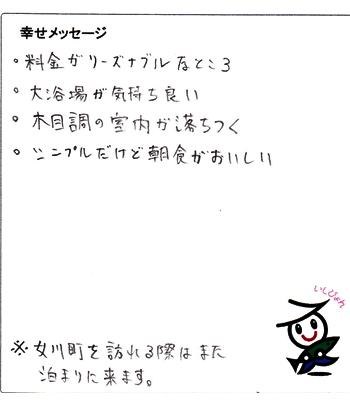 幸せメッセージ
。料金がリーズナブルなところ
。大浴場が気持ち良い
。木目調の室内が落ちつく
。シンプルだけど朝食がおいしい
いしぴょん
※女川町を訪れる際はまた
泊まりに来ます。